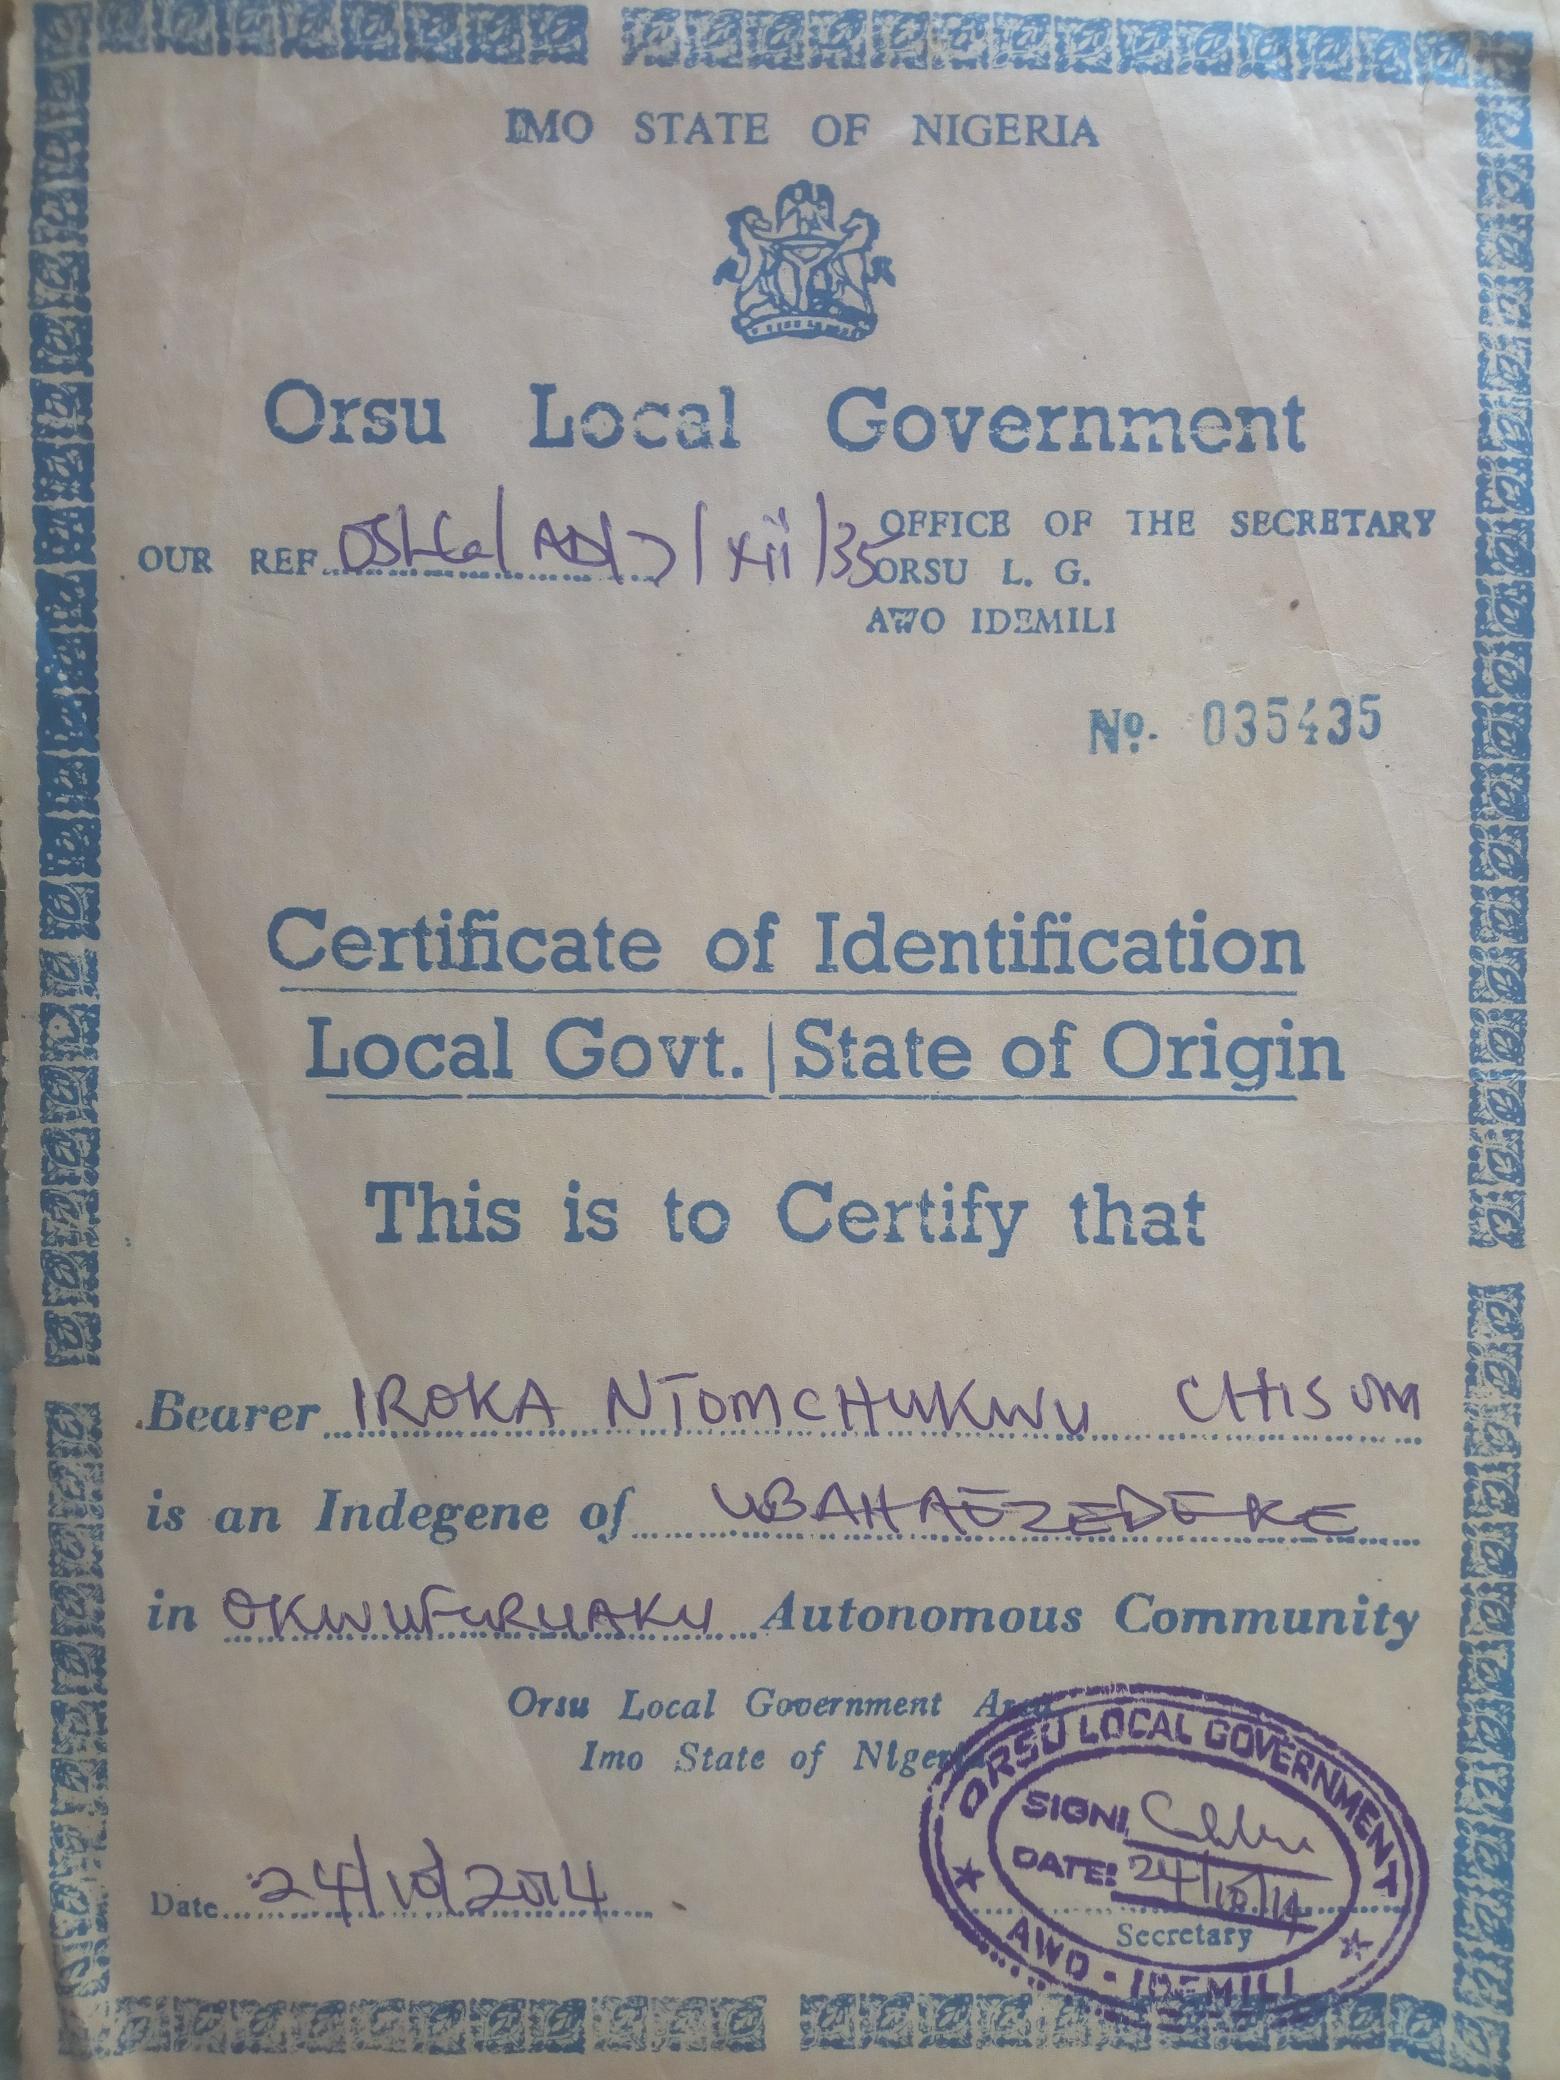 IMO STATE OF NIGERIA
Orsu Local Government
OUR REF. OSLG/AD/7/xii/35
OFFICE OF THE SECRETARY
ORSU L. G.
AWO IDEMILI
No. 035435
Certificate of Identification
Local Govt. | State of Origin
This is to Certify that
Bearer IROKA NTOMCHUKWU CHISOM
is an Indegene of UBAHAEZEDEKE
in OKWUFURUAKU Autonomous Community
Orsu Local Government Area
Imo State of NIgeria
Date 24/10/2014
ORSU LOCAL GOVERNMENT
SIGN
DATE: 24/10/14
Secretary
AWO-IDEMILI